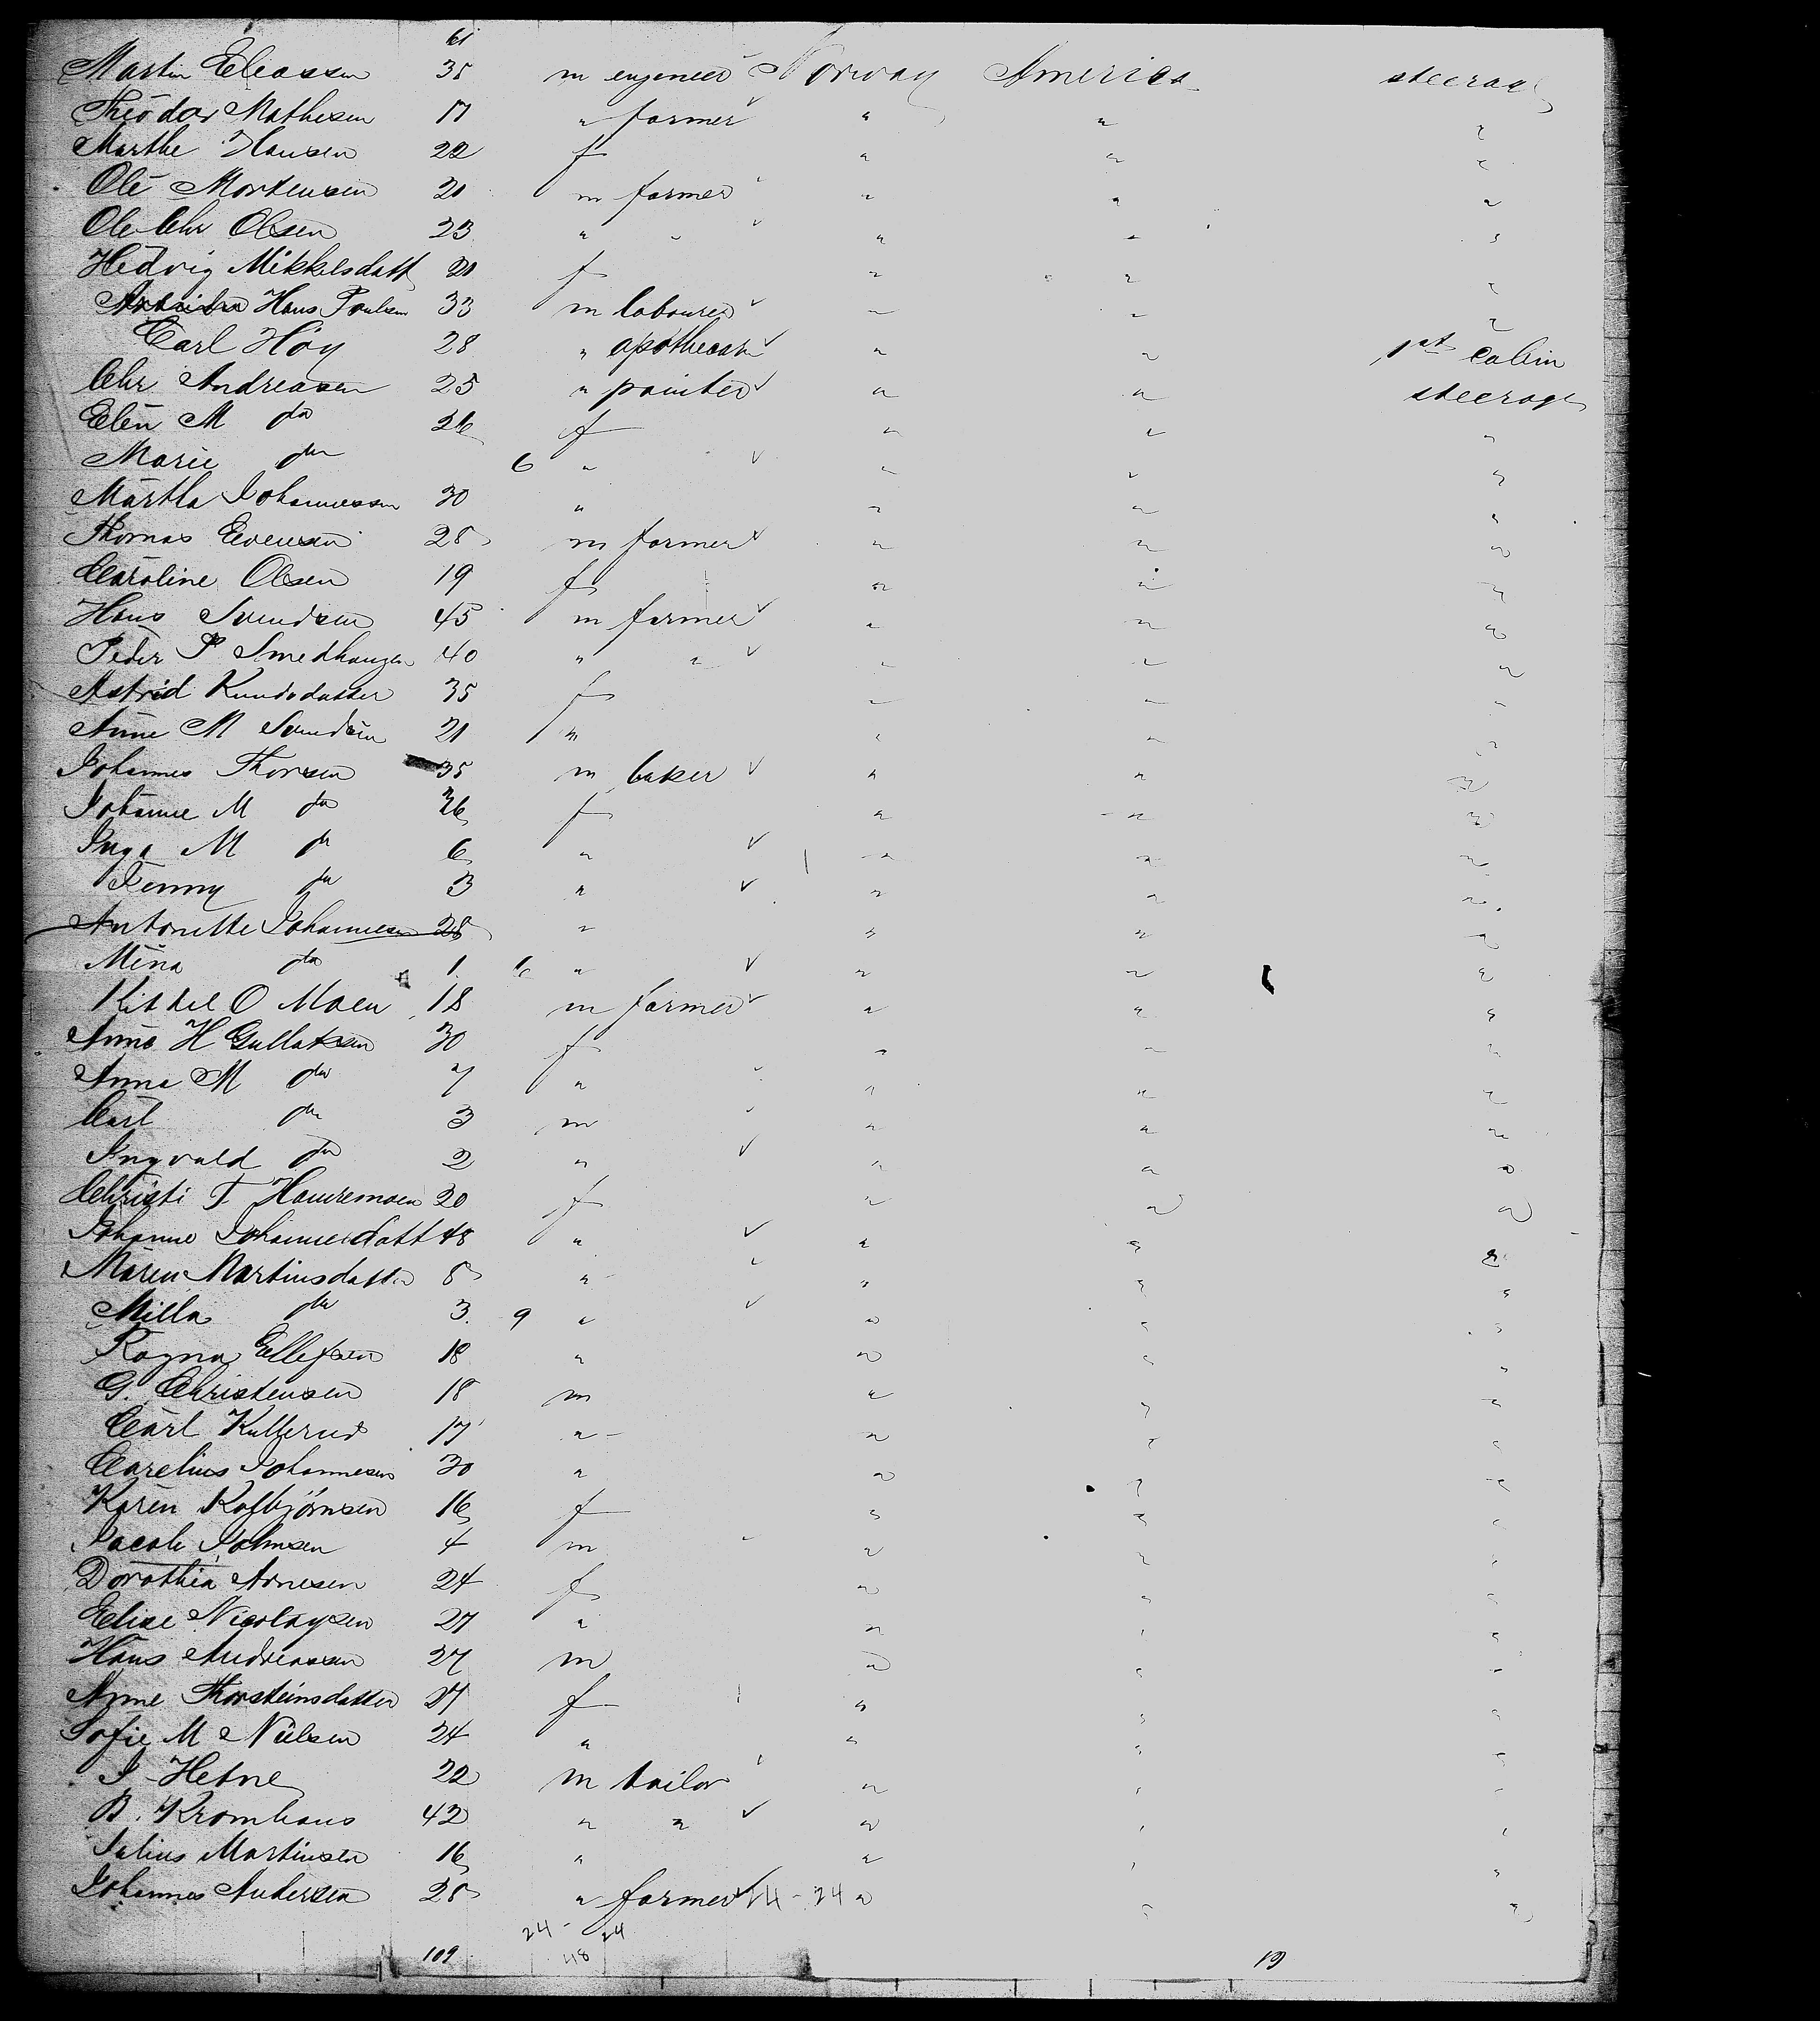 61
Martin Eliassen 35 m engineer Norway America steerage
Theodor Mathesen 17 " farmer " " "
Marthe Hansen 22 f " " "
Ole Mortensen 21 m farmer " " "
Ole Chr Olsen 23 " " " " "
Hedvig Mikkelsdatt 21 f " " "
Hans Poulsen 33 m labourer " " "
Carl Höy 28 " apothecary " " 1st cabin
Chr Andreasen 25 " painter " " steerage
Elen M do 26 f " " "
Marie do 6 " " " "
Martha Johannessen 30 " " " "
Thomas Evensen 28 m farmer " " "
Caroline Olsen 19 f " " "
Hans Svendsen 45 m farmer " " "
Peder P Smedhaugen 40 " " " " "
Astrid Knudsdatter 35 f " " "
Anne M Svendsen 21 " " " "
Johannes Thorsen 35 m baker " " "
Johanne M do 36 f " " "
Inga M do 6 " " " "
Jenny do 3 " " " "
Antonette Johannesen 28 " " " "
Mina do 1 6 " " " "
Kittel O Moen 18 m farmer " " "
Anne H Gullaksen 30 f " " "
Anna M do 7 " " " "
Carl do 3 m " " "
Ingvald do 2 " " " "
Christi T 20 f " " "
Johanne Johannesdatt 48 " " " "
Maren Martinsdatter 8 " " " "
Milla do 3 9 " " " "
Ragna Ellefsen 18 " " " "
G. Christensen 18 m " " "
Carl Kullerud 17 " " " "
Carelius Johannesen 30 " " " "
Karen 16 f " " "
Jacob Johnsen 4 m " " "
Dorothea Arnesen 24 f " " "
Elise Nicolaysen 27 " " " "
Hans Andreassen 27 m " " "
Anne Thorsteinsdatter 27 f " " "
Sofie M Nielsen 24 " " " "
J Hetne 22 m tailor " " "
B. Kromhaus 42 " " " " "
Julius Martinsen 16 " " " "
Johannes Andersen 28 " farmer 24 - 24 " " "
24 - 24
109 48 19